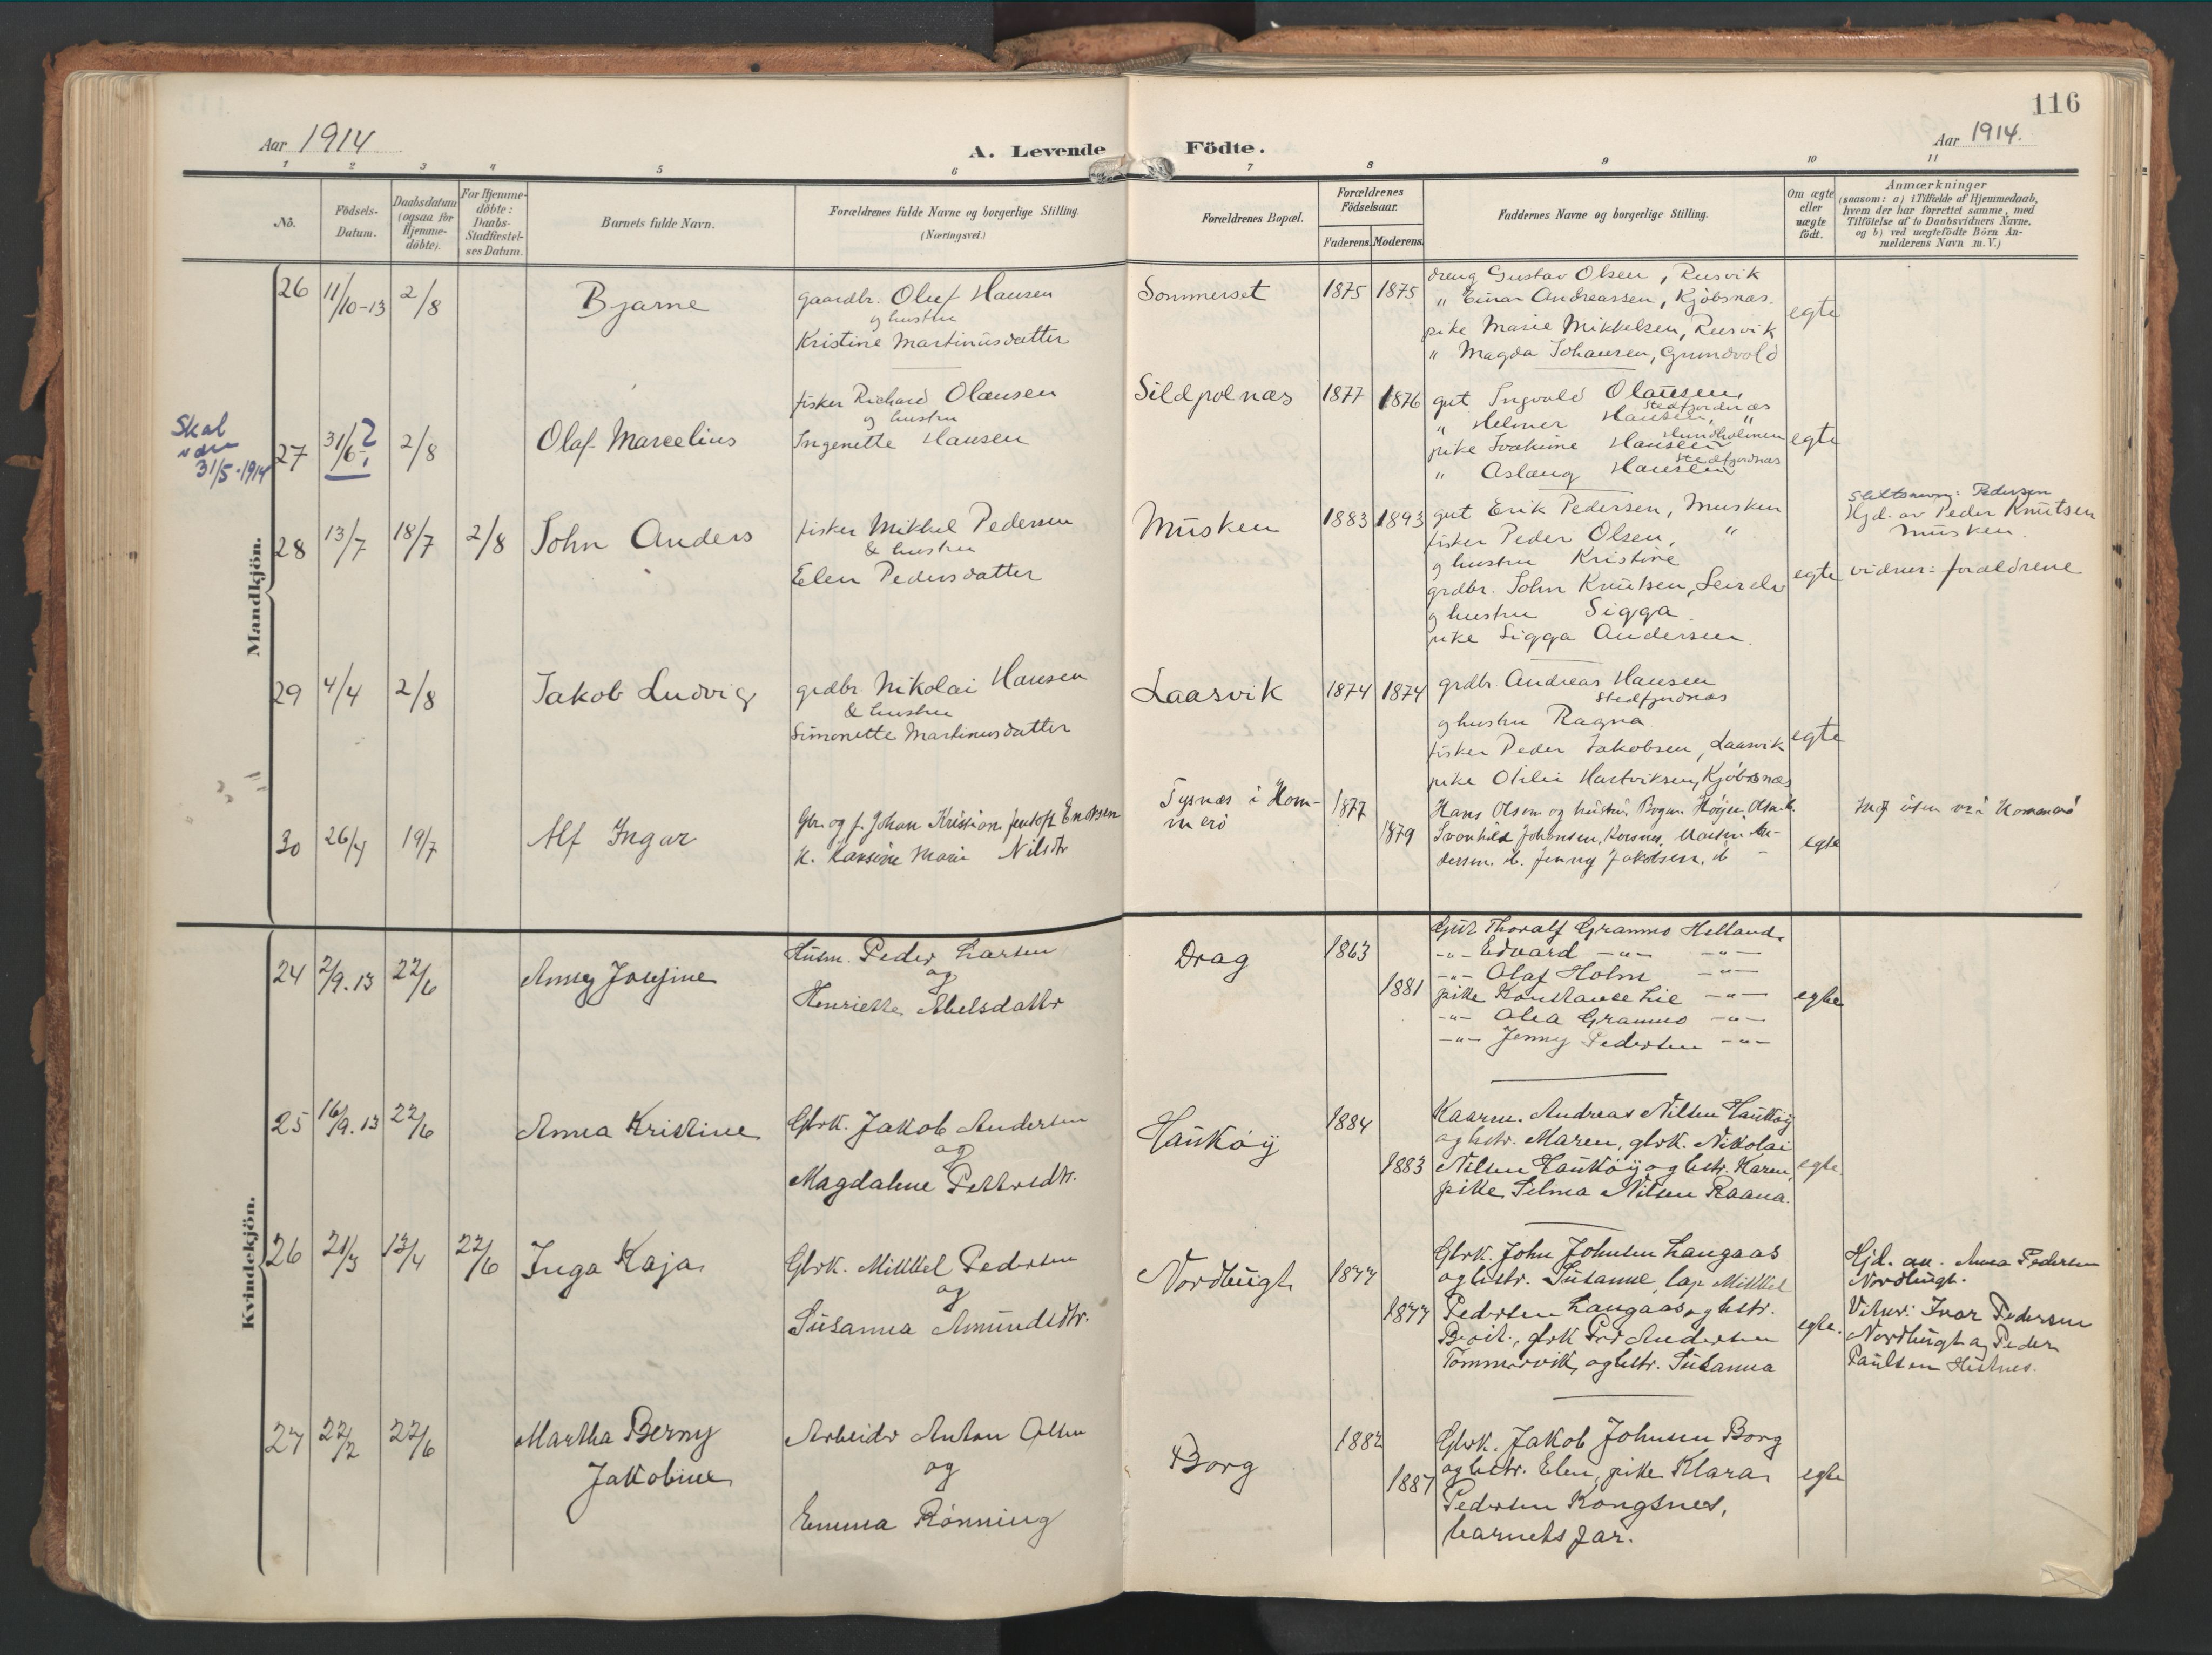 116
Aar 1914
A. Levende Födte.
Aar 1914.
1 2 3 4 5 6 7 8 9 10 11
No.
Födsels-Datum.
Daabsdatum (ogsaa for Hjemme-döbte).
For Hjemme-döbte: Daabs-Stadfæstel-ses Datum.
Barnets fulde Navn.
Forældrenes fulde Navne og borgerlige Stilling.
(Næringsvei.)
Forældrenes Bopæl.
Forældrenes Födselsaar.
Faderens. Moderens.
Faddernes Navne og borgerlige Stilling.
Om ægte eller uægte födt.
Anmærkninger
(saasom: a) i Tilfælde af Hjemmedaab,
hvem der har forrettet samme, med
Tilföielse af to Daabsvidners Navne,
og b) ved uægtefödte Börn An-
melderens Navn m. V.)
Mandkjön.
26 11/10-13 2/8 Bjarne
gaardbr. Oluf Hansen
og hustru
Kristine Martinusdatter
Sommerset 1875 1875
dreng Gustav Olsen, Rusvik
" Einar Andreassen, Kjøbsnæs.
pike Marie Mikkelsen, Rusvik
" Magda Johansen, Grundvold
egte
Skal
være
31/5-1914
27 31/6? 2/8 Olaf Marcelius
fisker Richard Olausen
og hustru
Ingenette Hansen
Sildpolnæs 1877 1876
gut Ingvald Olausen,
Stedfjordnæs
" Helmer Hansen, "
pike Joakime Hansen Hundholmen
" Aslaug Hansen Stedfjordnæs
egte
28 13/7 18/7 2/8 John Anders
fisker Mikkel Pedersen
& hustru
Elen Pedersdatter
Musken 1883 1893
gut Erik Pedersen, Musken
fisker Peder Olsen, "
og hustru Kristine
grdbr. John Knutsen, Leirelv
og hustru Sigga
pike Sigga Andersen.
egte
Slektsnavn: Pedersen
Hjd. av Peder Knutsen
Musken.
vidner: forældrene
29 4/4 2/8 Jakob Ludvig
grdbr. Nikolai Hansen
& hustru
Simonette Martinusdatter
Laasvik 1874 1874
grdbr. Andreas Hansen
Stedfjordnæs
og hustru Ragna
fisker Peder Jakobsen, Laasvik
pike Otilie Hartviksen, Kjøbsnæs
egte
30 26/4 19/7 Alf Ingar
Gbr. og f. Johan Kristian Enoksen
K. Kaspine Marie Nilsdtr
Tysnæs i Ham-
merø
1877 1879
Hans Olsen og hustru
Johansen, Korsnes,
dersen, Jenny Jakobsen, d
egte
Kvindekjön.
24 2/9.13 22/6 Anny Josefine
Husm. Peder Larsen
og
Henriette Abelsdattr
Drag 1863 1881
Gut Thoralf Grammo Helland.
-"- Edvard -"- -"-
-"- Olaf Holm -"-
pike Konstance Lie -"-
-"- Olea Grammo -"-
-"- Jenny Pedersen -"-
egte
25 16/9.13 22/6 Anna Kristine
Gbrk. Jakob Andersen
og
Magdalene Pettersdtr.
Haukøy 1884 1883
Kaarm. Andreas Nilsen Haukøy
og hstr. Maren, gbrk. Nikolai
Nilsen Haukøy og hstr. Karen,
pike Selma Nilsen Raana.
egte.
26 21/3 13/4 22/6 Inga Kaja
Gbrk. Mikkel Pedersen
og
Susanna Amundsdtr.
Nordbugt 1877 1877
Gbrk. John Johnsen Langaas
og hstr. Susanne, lap Mikkel
Pedersen Langaas og hstr.
Berit, gbrk Per Andersen
Tømmervik, og hstr. Susanna
egte.
Hjd. av Anna Pedersen
Nordbugt.
Vitner: Ivar Pedersen
Nordbugt og Peder
Paulsen
27 22/2 22/6 Martha Berny
Jakobine
Arbeider Anton Olsen
og
Emma Rønning
Borg 1882 1887
Gbrk. Jakob Johnsen Borg
og hstr. Elen, pike Klara
Pedersen Kongsnes,
barnets far.
egte